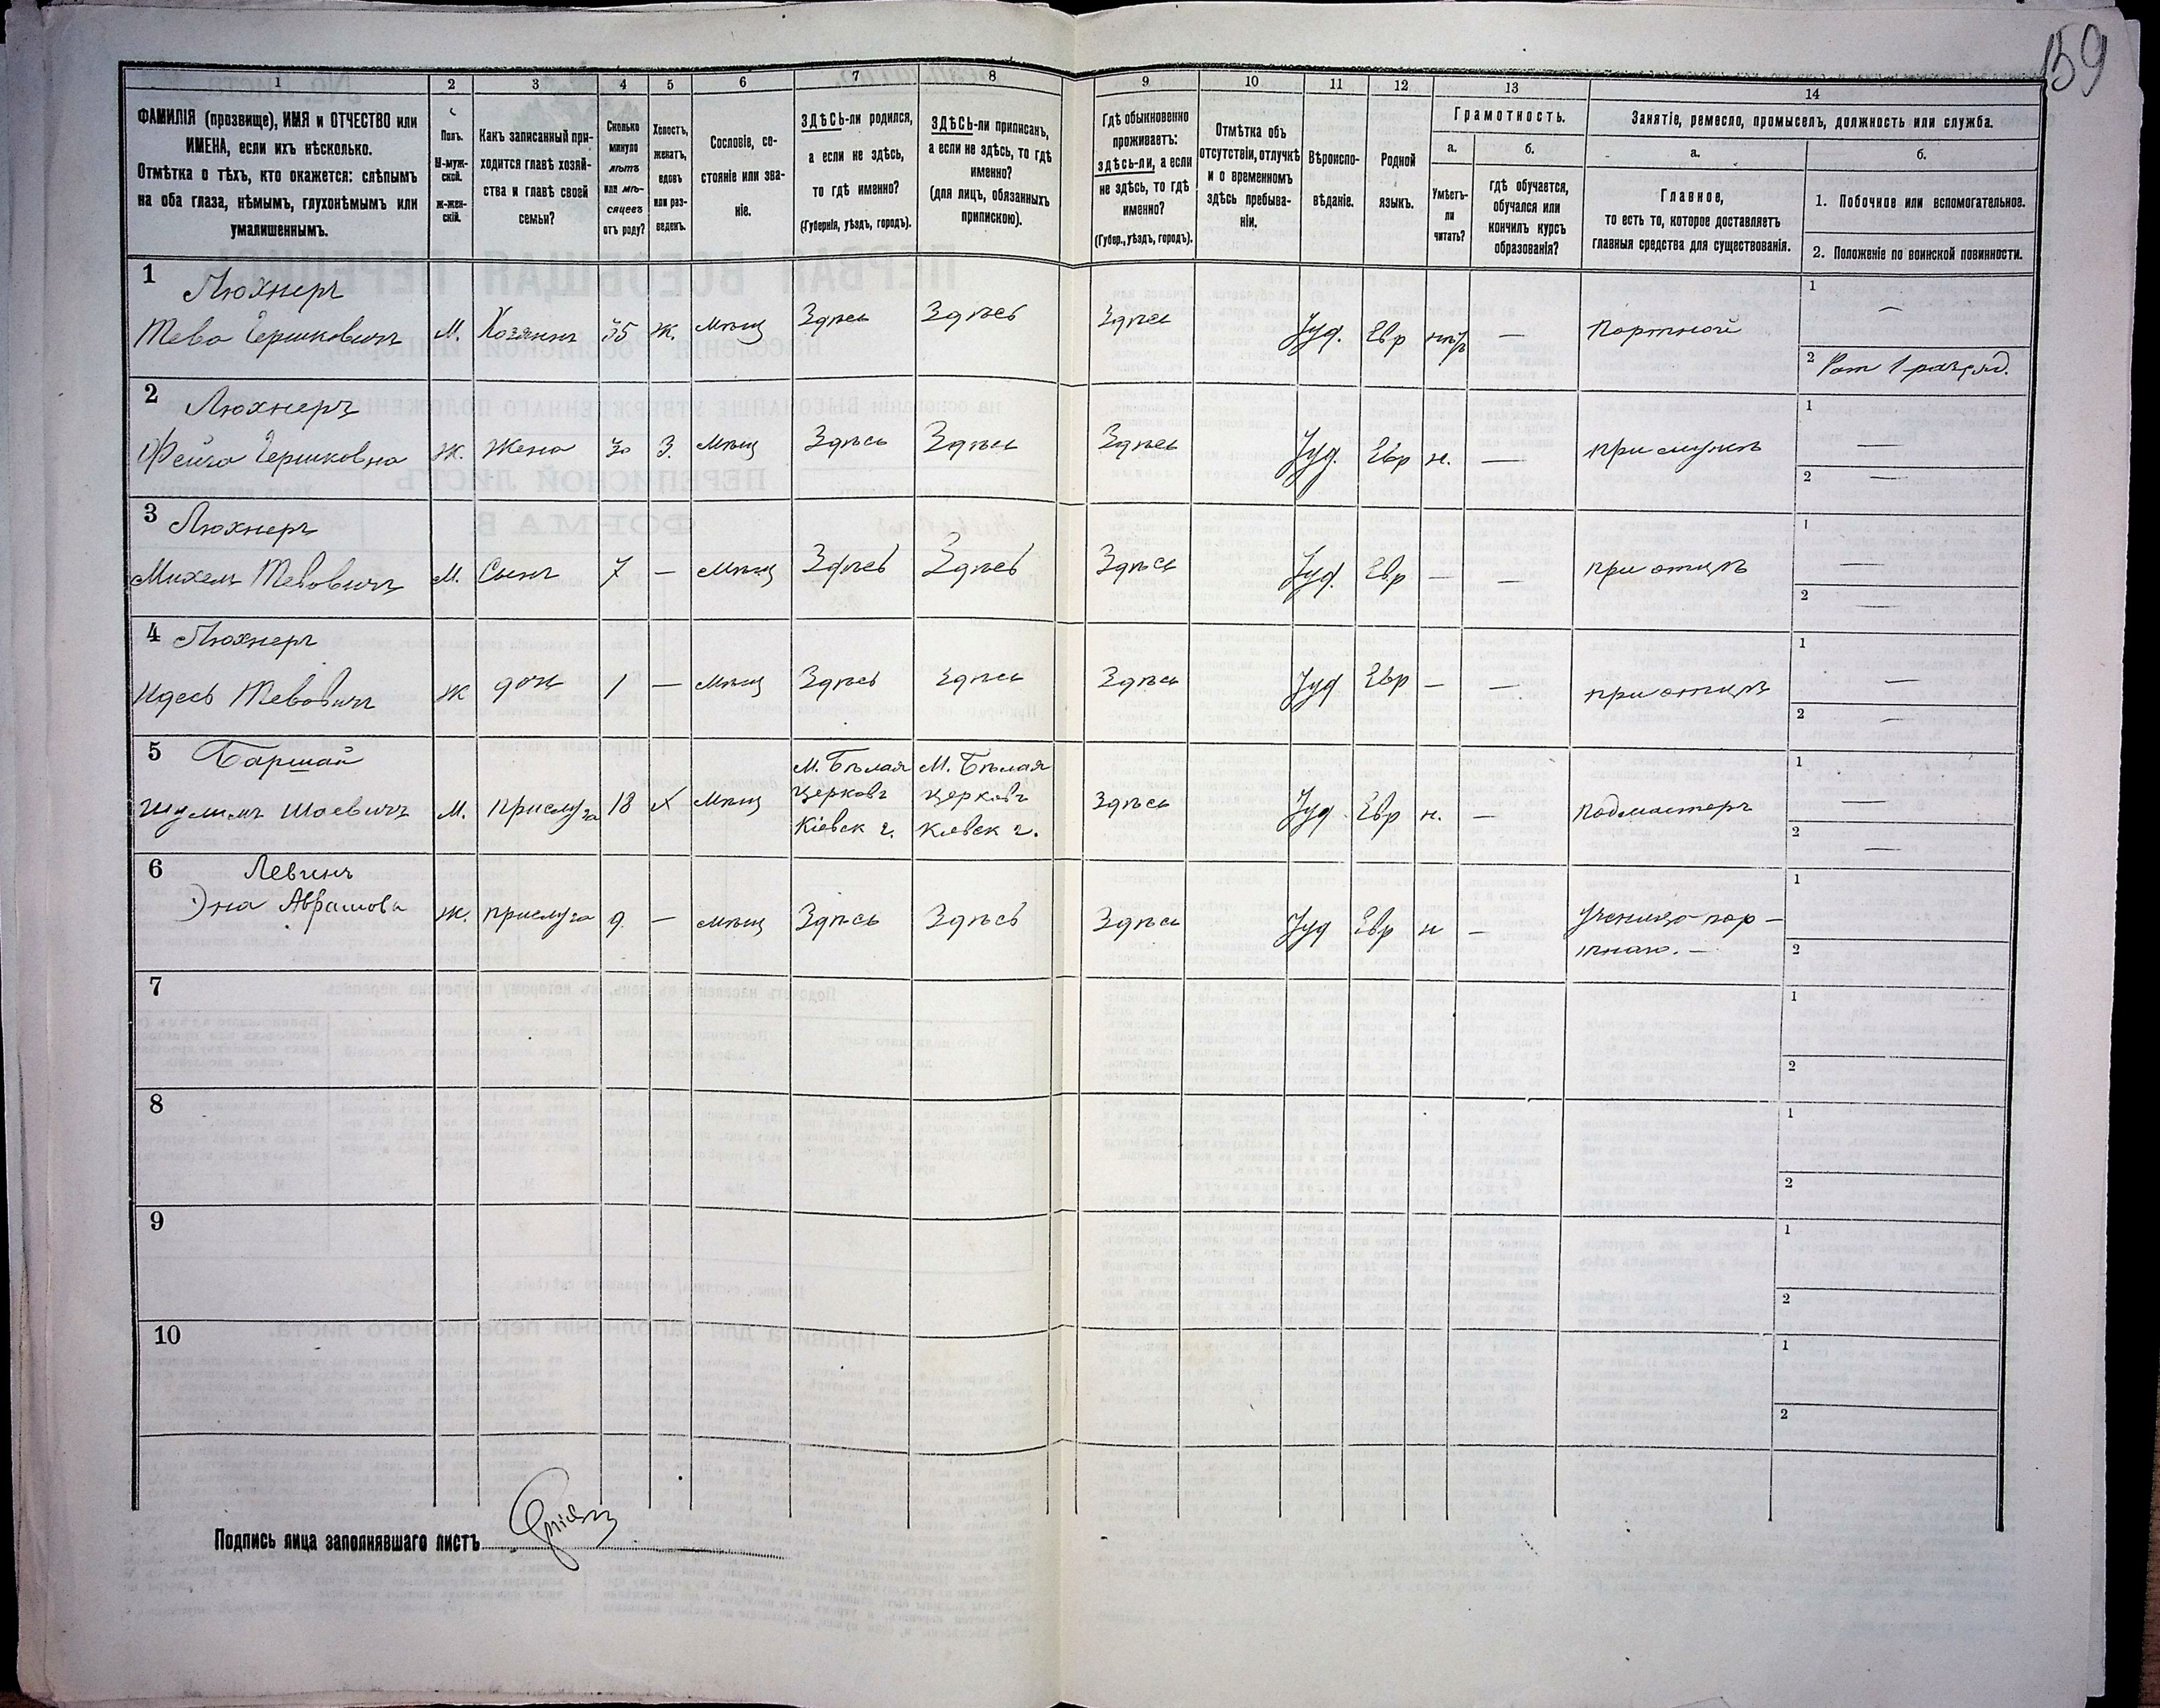 159
1 2 3 4 5 6 7 8 9 10 11 12 13 14
ФАМИЛІЯ (прозвище), ИМЯ и ОТЧЕСТВО или
ИМЕНА, если ихъ нѣсколько.
Отмѣтка о тѣхъ, кто окажется: слѣпымъ
на оба глаза, нѣмымъ, глухонѣмымъ или
умалишеннымъ.
Полъ.
М-муж-
ской.
ж-жен-
скій.
Какъ записанный при-
ходится главѣ хозяй-
ства и главѣ своей
семьи?
Сколько
минуло
лѣтъ
или мѣ-
сяцевъ
отъ роду?
Холостъ,
женатъ,
вдовъ
или раз-
веденъ.
Сословіе, со-
стояніе или зва-
ніе.
ЗДѢСЬ-ли родился,
а если не здѣсь,
то гдѣ именно?
(Губернія, уѣздъ, городъ).
ЗДѢСЬ-ли приписанъ,
а если не здѣсь, то гдѣ
именно?
(для лицъ, обязанныхъ
припискою).
Гдѣ обыкновенно
проживаетъ:
здѣсь-ли, а если
не здѣсь, то гдѣ
именно?
(Губер., уѣздъ, городъ).
Отмѣтка объ
отсутствіи, отлучкѣ
и о временномъ
здѣсь пребыва-
ніи.
Вѣроиспо-
вѣданіе.
Родной
языкъ.
Грамотность.
а.
Умѣетъ-
ли
читать?
б.
гдѣ обучается,
обучался или
кончилъ курсъ
образованія?
Занятіе, ремесло, промыселъ, должность или служба.
а.
Главное,
то есть то, которое доставляетъ
главныя средства для существованія.
б.
1. Побочное или вспомогательное.
2. Положеніе по воинской повинности.
1 Люхнеръ
Тево Гершковичъ М. Хозяинъ 35 Ж. Мѣщ Здѣсь Здѣсь Здѣсь Іуд. Евр — Портной
1 —
2 Рат 1 разряд.
2 Люхнеръ
Фейга Гершковна Ж. Жена 30 З. Мѣщ Здѣсь Здѣсь Здѣсь Іуд. Евр н. — при мужѣ
1 —
2 —
3 Люхнеръ
Михель Тевовичъ М. Сынъ 7 — Мѣщ Здѣсь Здѣсь Здѣсь Іуд. Евр — — при отцѣ
1 —
2 —
4 Люхнеръ
Идесь Тевовичъ Ж дочь 1 — Мѣщ Здѣсь Здѣсь Здѣсь Іуд Евр — — при отцѣ
1 —
2 —
5 Баршай
Шулимъ Шоевичъ М. прислуга 18 Х Мѣщ
М. Бѣлая
Церковь
Кіевск г.
М. Бѣлая
церковь
Киевск г.
Здѣсь Іуд Евр н. — подмастеръ
1 —
2 —
6 Левинъ
Эна Аврамова Ж. прислуга 9 — мѣщ Здѣсь Здѣсь Здѣсь Іуд Евр н — Ученица пор-
тнаго. —
1
2
7
1
2
8
1
2
9
1
2
10
1
2
Подпись лица заполнявшаго листъ